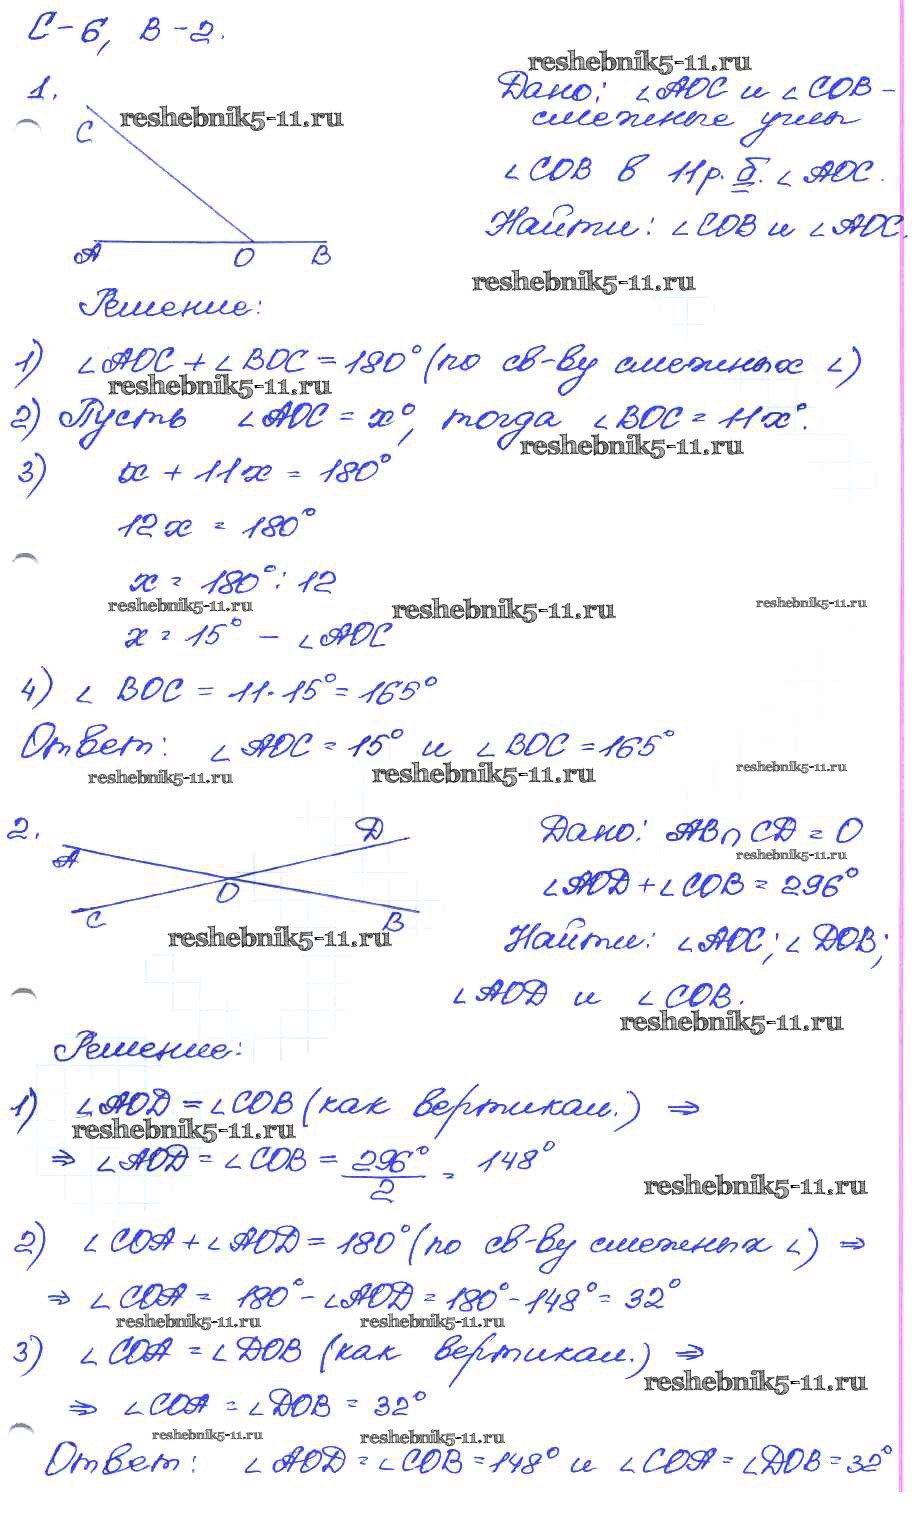 С-6, В-2.
reshebnik5-11.ru
1.
Дано: ∠AOC и ∠COB -
C
reshebnik5-11.ru
смежные углы
∠COB в 11 р. б. ∠AOC.
Найти: ∠COB и ∠AOC.
A O B
reshebnik5-11.ru
Решение:
1) ∠AOC + ∠BOC = 180° (по св-ву смежных ∠)
reshebnik5-11.ru
2) Пусть ∠AOC = x°, тогда ∠BOC = 11x°.
reshebnik5-11.ru
3) x + 11x = 180°
12x = 180°
x = 180° : 12
reshebnik5-11.ru reshebnik5-11.ru reshebnik5-11.ru
x = 15° - ∠AOC
4) ∠ BOC = 11·15° = 165°
Ответ: ∠AOC = 15° и ∠BOC = 165°
reshebnik5-11.ru reshebnik5-11.ru reshebnik5-11.ru
2.
D
Дано: AB∩CD = O
A
reshebnik5-11.ru
O
∠AOD + ∠COB = 296°
C B
reshebnik5-11.ru
Найти: ∠AOC; ∠DOB;
∠AOD и ∠COB.
reshebnik5-11.ru
Решение:
1) ∠AOD = ∠COB (как вертикал.) ⇒
reshebnik5-11.ru
⇒ ∠AOD = ∠COB = 296°/2 = 148°
reshebnik5-11.ru
2) ∠COA + ∠AOD = 180° (по св-ву смежных ∠) ⇒
⇒ ∠COA = 180° - ∠AOD = 180° - 148° = 32°
reshebnik5-11.ru reshebnik5-11.ru
3) ∠COA = ∠DOB (как вертикал.) ⇒
reshebnik5-11.ru
⇒ ∠COA = ∠DOB = 32°
reshebnik5-11.ru reshebnik5-11.ru
Ответ: ∠AOD = ∠COB = 148° и ∠COA = ∠DOB = 32°